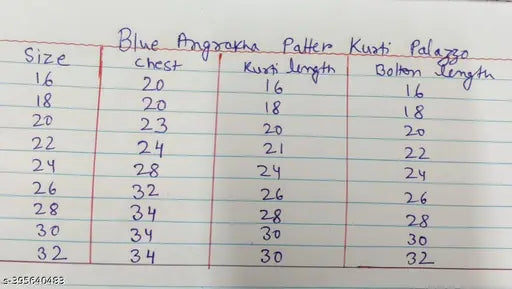 Blue Angrakha Patter Kurti Palazzo
Size Chest Kurti length Bottom length
16 20 16 16
18 20 18 18
20 23 20 20
22 24 21 22
24 28 24 24
26 32 26 26
28 34 28 28
30 34 30 30
32 34 30 32
s-395640483